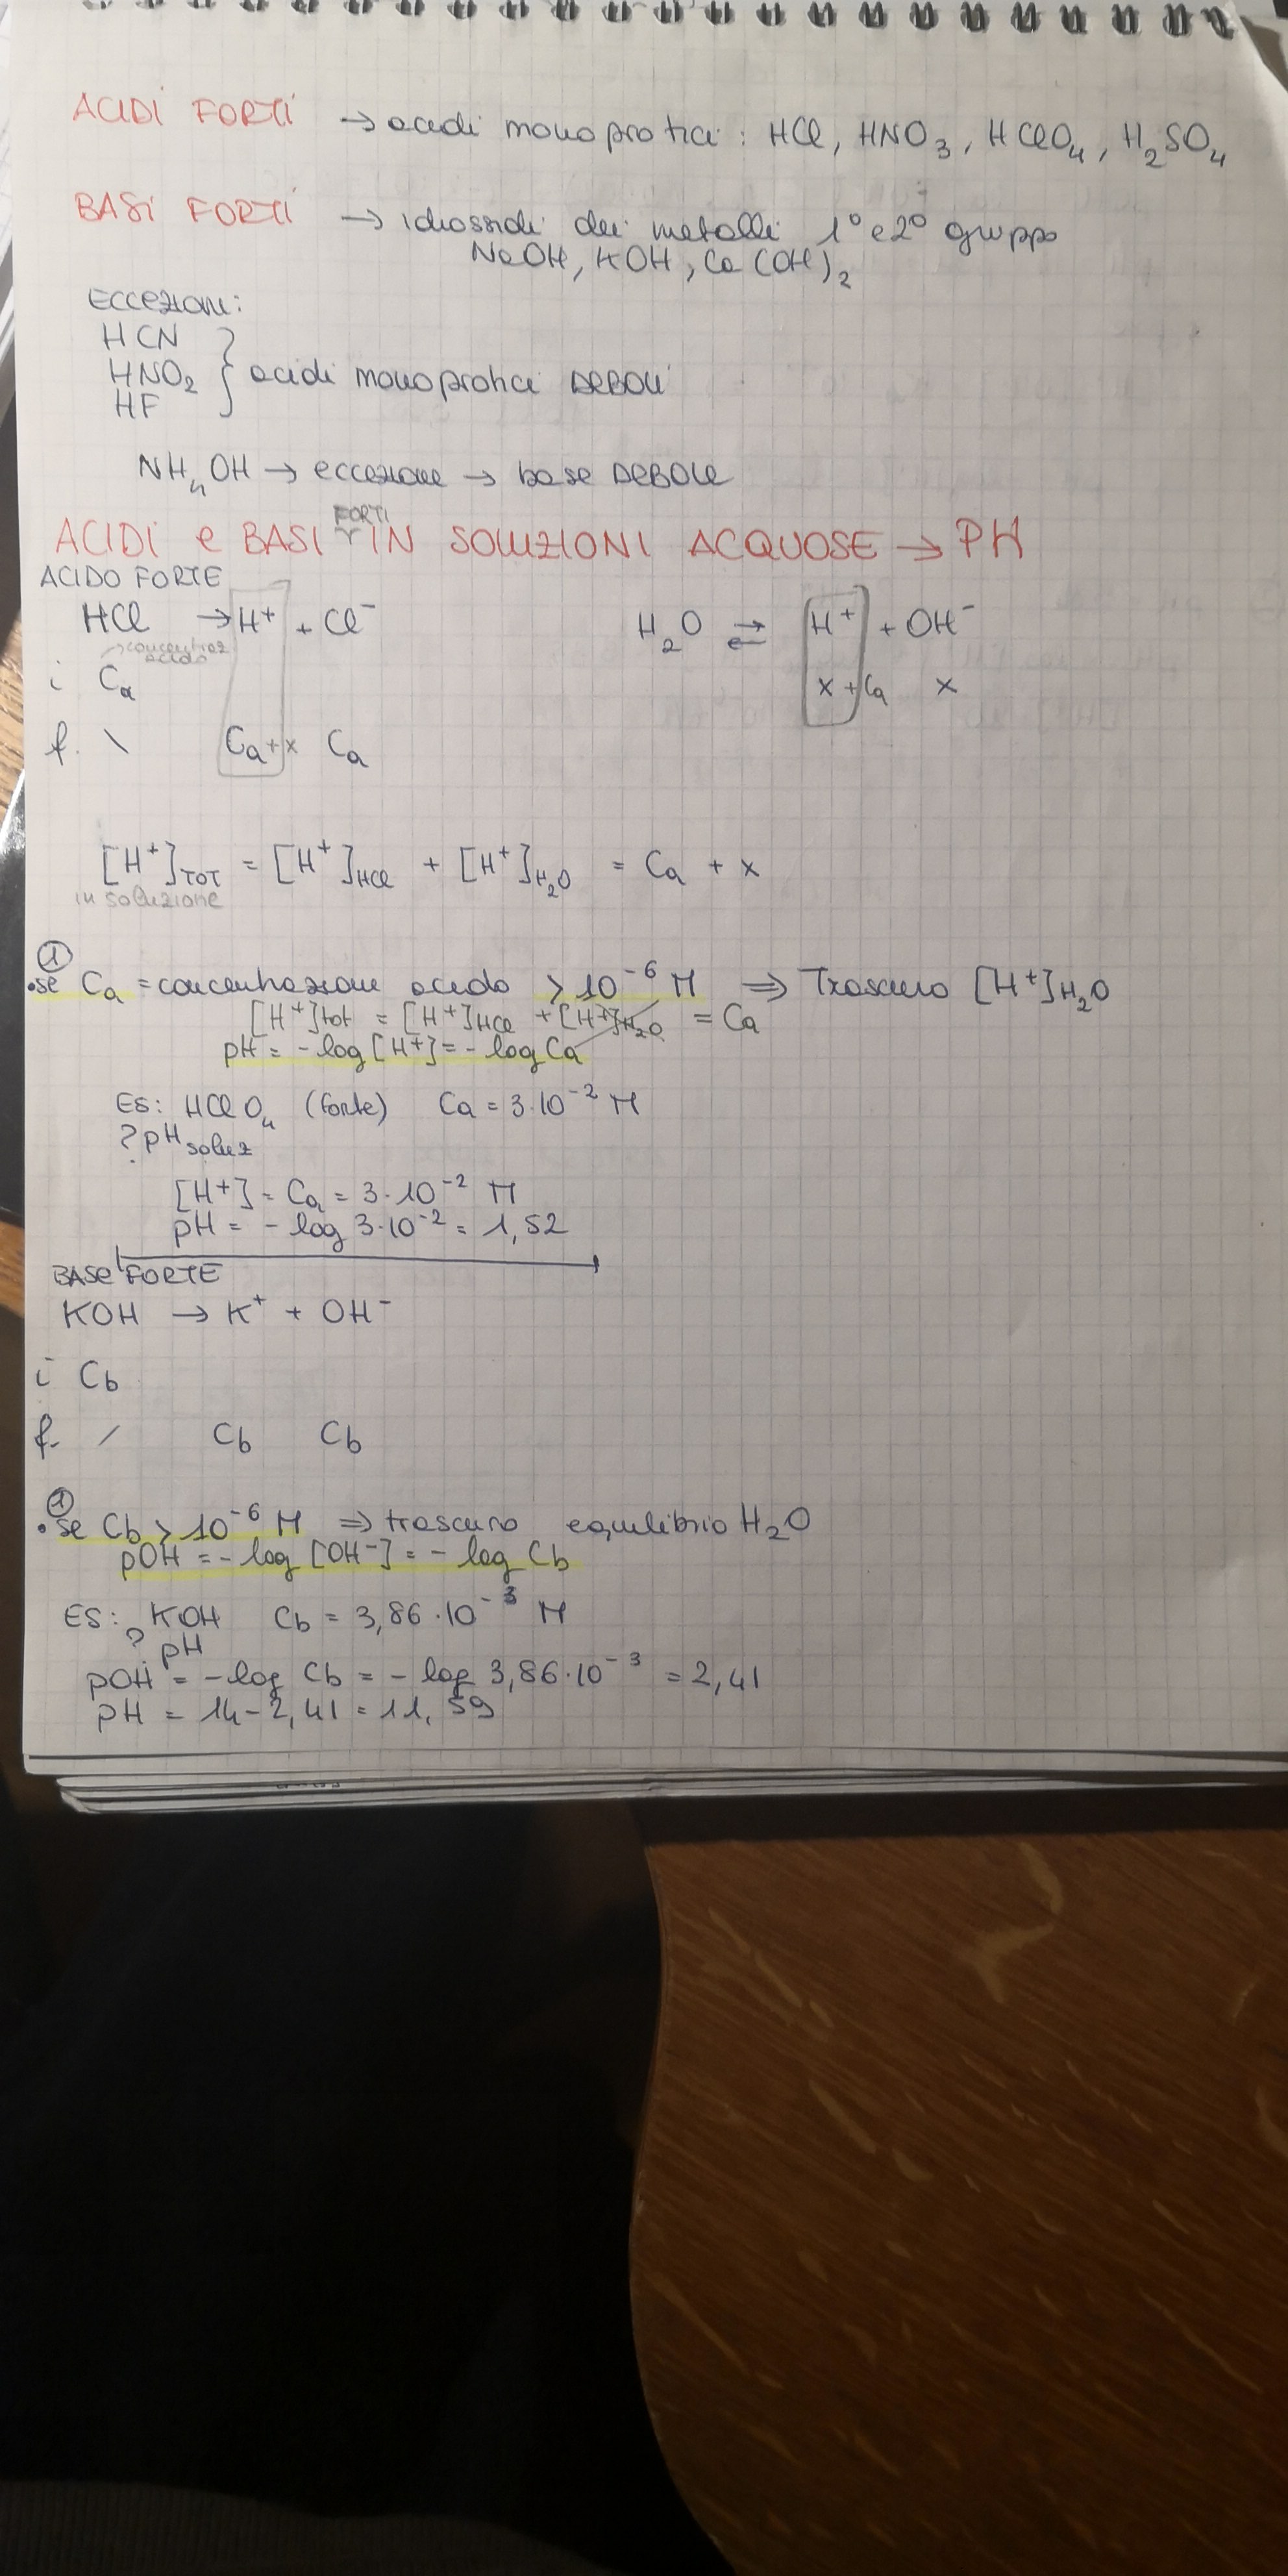 ACIDI FORTI → acidi monoprotici: HCl, HNO3, HClO4, H2SO4
BASI FORTI → idrossidi dei metalli 1° e 2° gruppo
NaOH, KOH, Ca(OH)2
ECCEZIONI:
HCN
HNO2 } acidi monoprotici DEBOLI
HF
NH4OH → eccezione → base DEBOLE
FORTI
ACIDI e BASI IN SOLUZIONI ACQUOSE → PH
ACIDO FORTE
HCl → H+ + Cl- H2O ⇄ H+ + OH-
→ concentraz
acido
i Ca x + Ca x
f. \ Ca + x Ca
[H+]TOT = [H+]HCl + [H+]H2O = Ca + x
in soluzione
①
• se Ca = concentrazione acido > 10^-6 M ⇒ Trascuro [H+]H2O
[H+]tot = [H+]HCl + [H+]H2O = Ca
pH = - log [H+] = - log Ca
ES: HClO4 (forte) Ca = 3·10^-2 M
? pH soluz
[H+] = Ca = 3·10^-2 M
pH = - log 3·10^-2 = 1,52
BASE FORTE
KOH → K+ + OH-
i Cb
f. / Cb Cb
①
• se Cb > 10^-6 M ⇒ trascuro equilibrio H2O
pOH = - log [OH-] = - log Cb
ES: KOH Cb = 3,86·10^-3 M
? pH
pOH = - log Cb = - log 3,86·10^-3 = 2,41
pH = 14 - 2,41 = 11,59